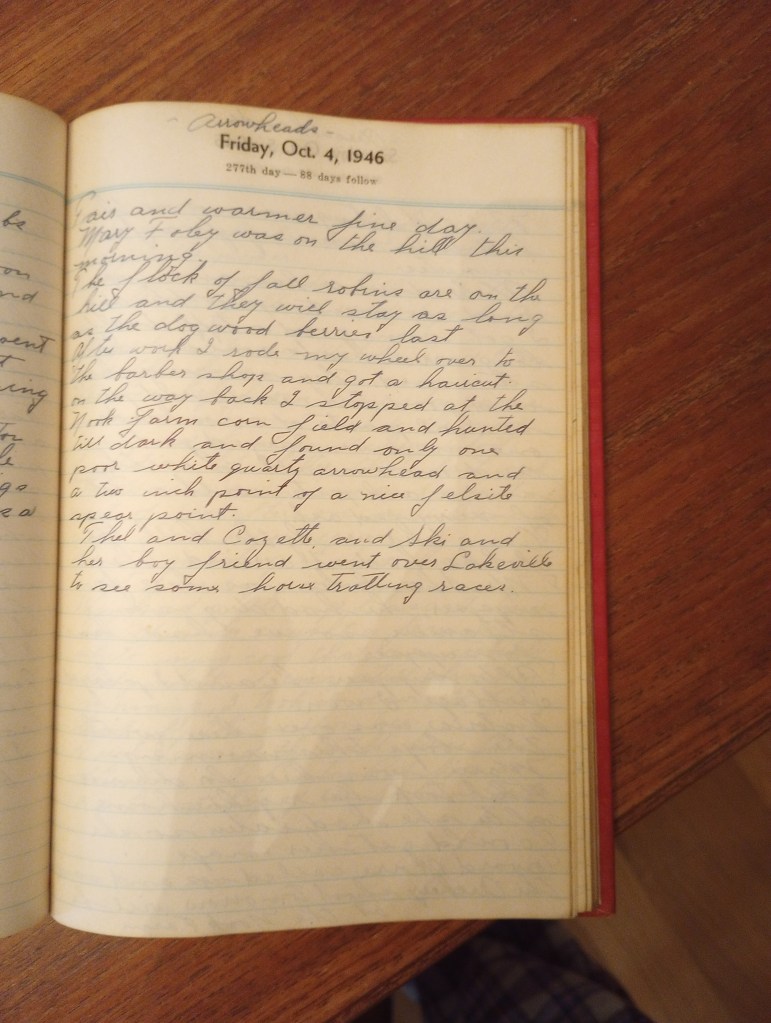 be
on
nd
went
t
ing
Tou
le
gs
s a
- Arrowheads -
Friday, Oct. 4, 1946
277th day — 88 days follow
Fair and warmer fine day.
Mary Foley was on the hill this
morning.
The flock of fall robins are on the
hill and they will stay as long
as the dog wood berries last
After work I rode my wheel over to
the barber shop and got a haircut.
on the way back I stopped at the
Nook farm corn field and hunted
till dark and found only one
poor white quartz arrowhead and
a two inch point of a nice felsite
spear point.
Thel and Cozette and Ski and
her boy friend went over Lakeville
to see some horse trotting races.